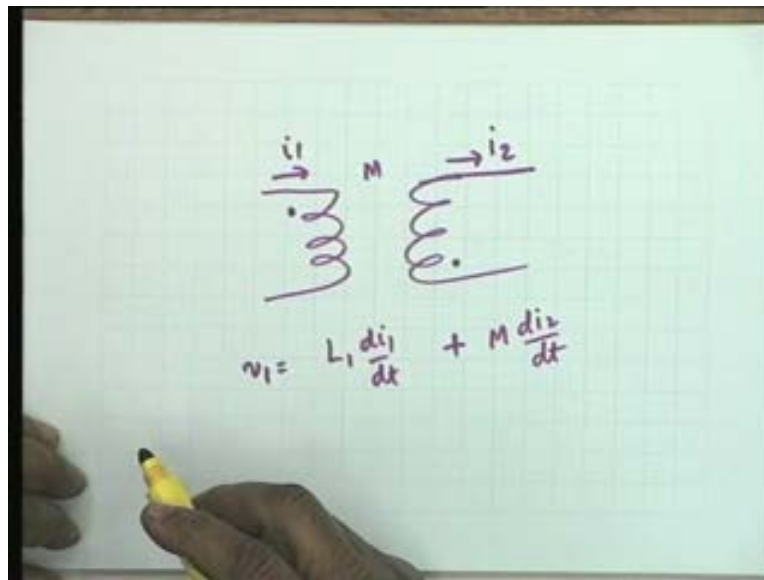 i₁ → M → i₂
v₁ = L₁ di₁/dt + M di₂/dt